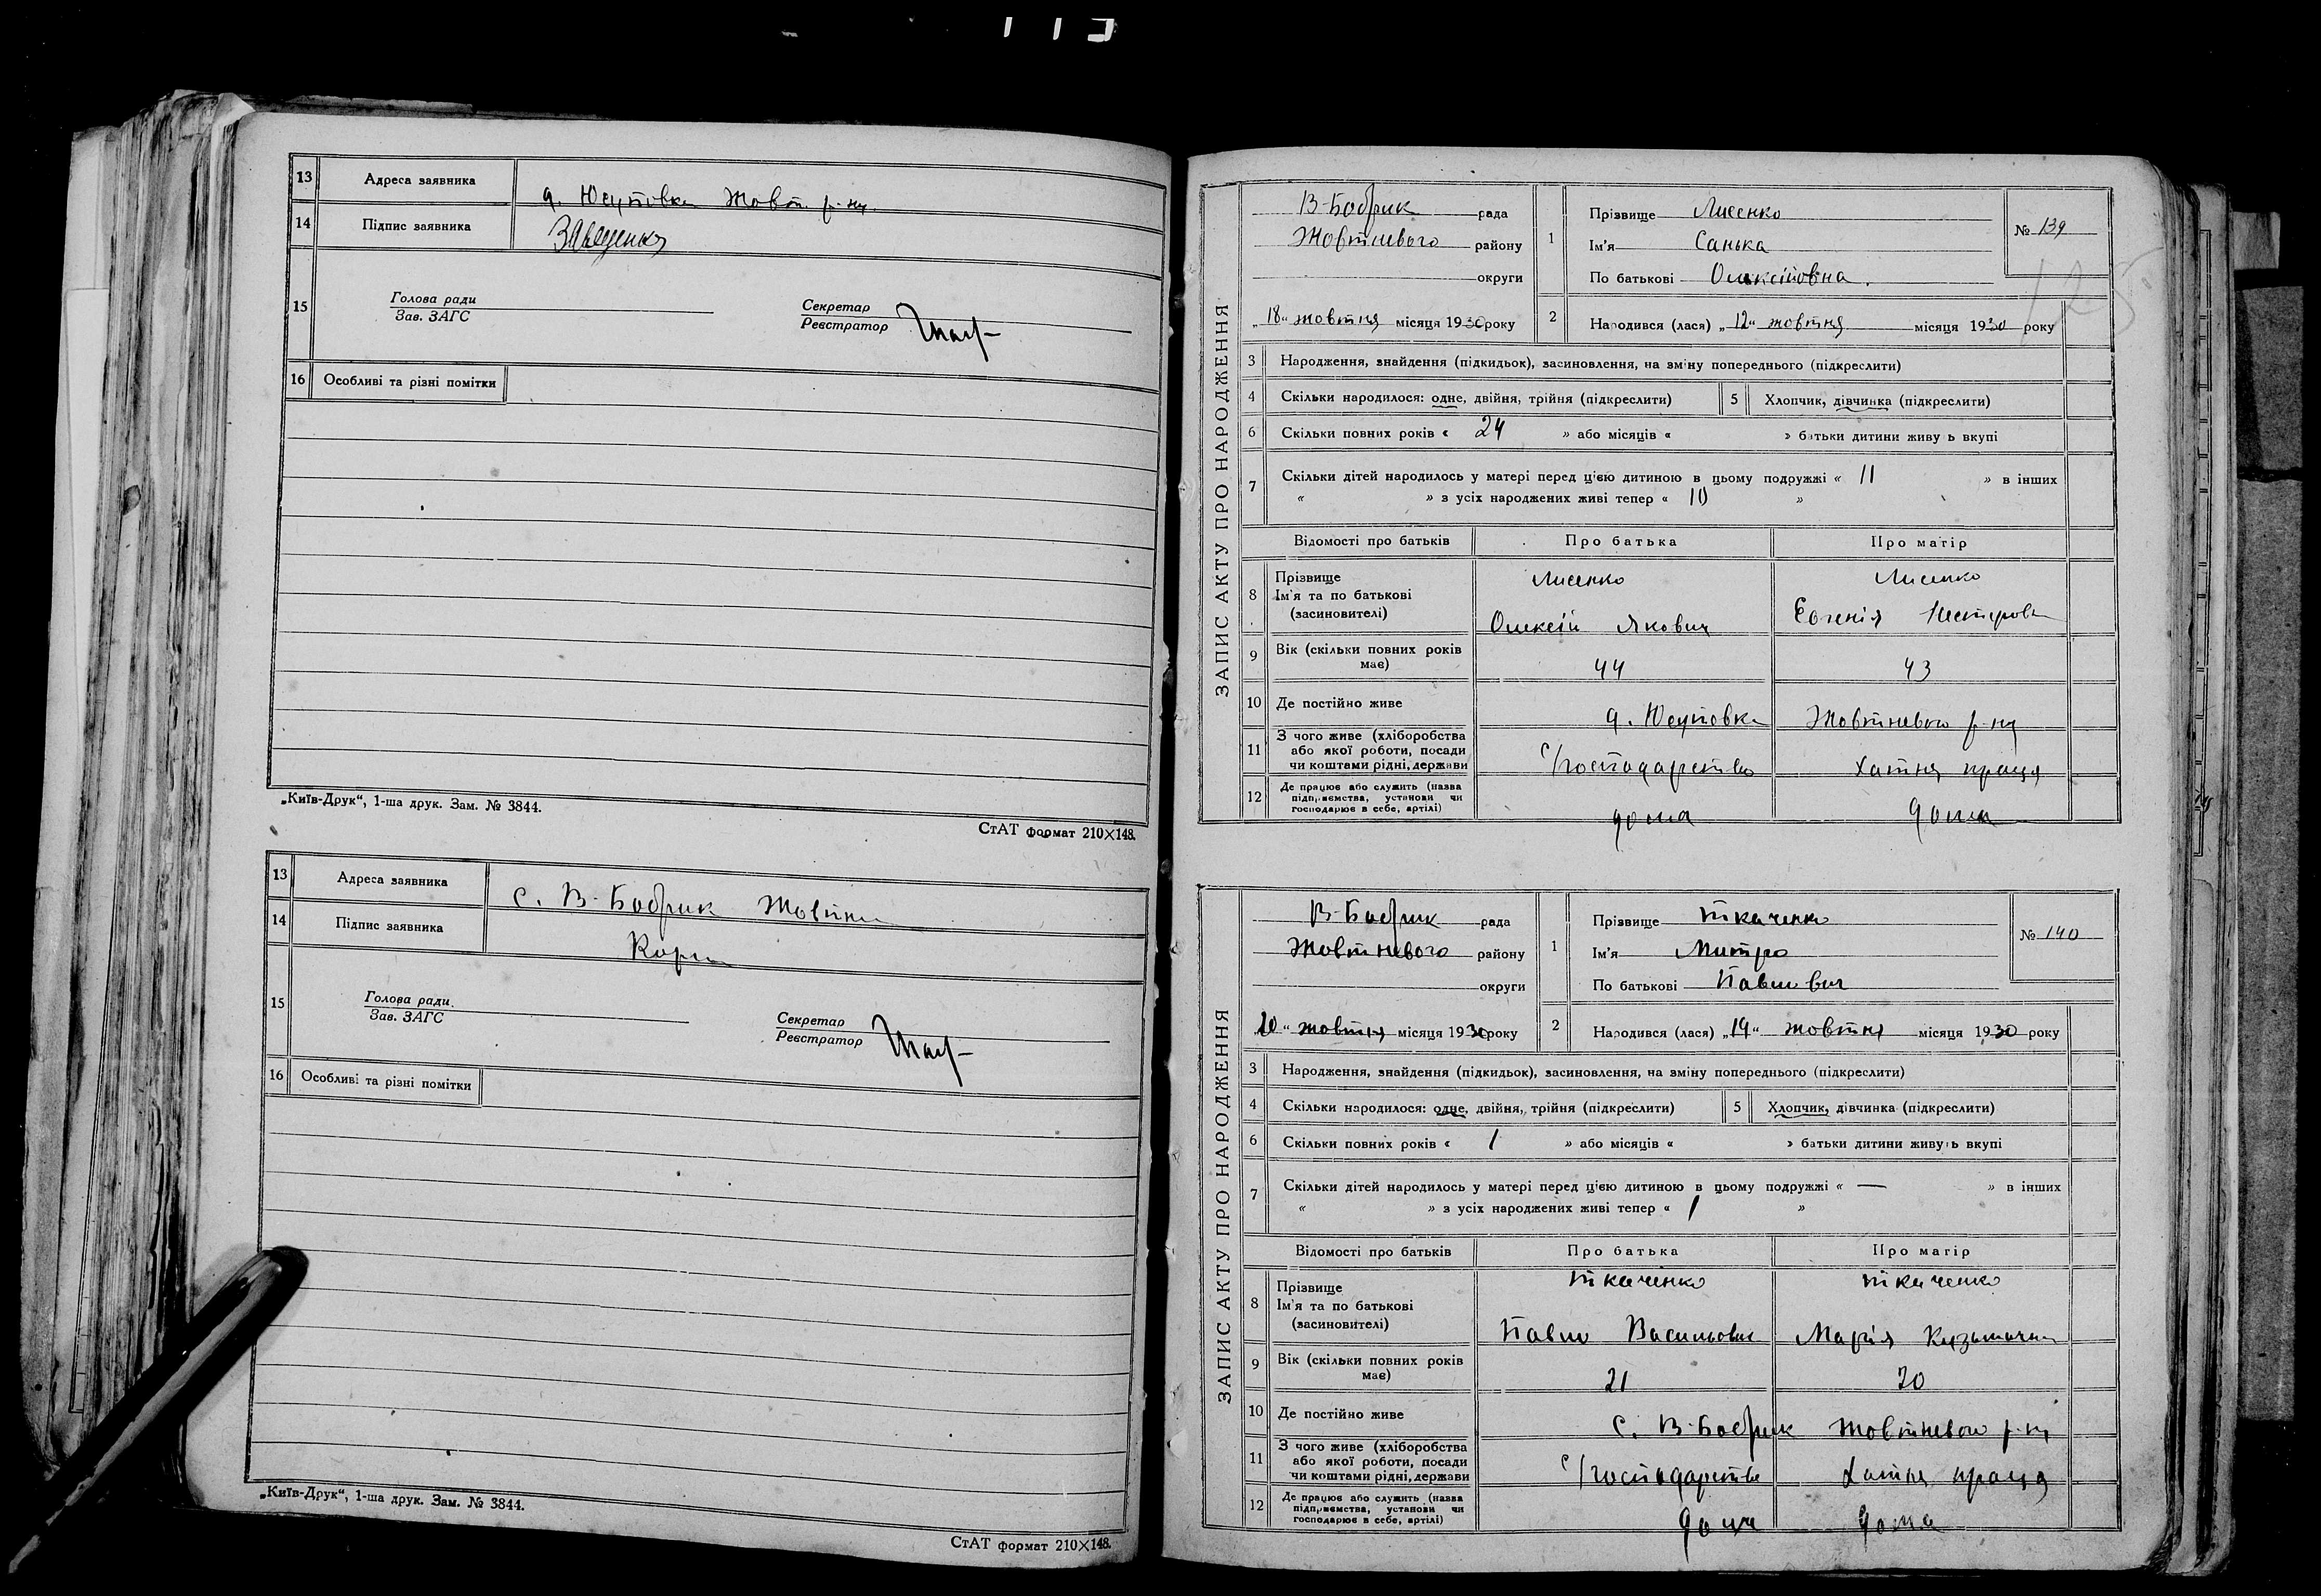 13 Адреса заявника д. Юсуповка Жовт. р-ну
14 Підпис заявника
15 Голова ради
Зав. ЗАГС
Секретар
Реєстратор
16 Особливі та різні помітки
„Київ-Друк“, 1-ша друк. Зам. № 3844.
СтАТ формат 210×148.
13 Адреса заявника с. В-Бобрик Жовтн
14 Підпис заявника
15 Голова ради
Зав. ЗАГС
Секретар
Реєстратор
16 Особливі та різні помітки
„Київ-Друк“, 1-ша друк. Зам. № 3844.
СтАТ формат 210×148.
ЗАПИС АКТУ ПРО НАРОДЖЕННЯ
В-Бобрик рада
Жовтневого району
округи
„18“ жовтня місяця 1930 року
1 Прізвище Лисенко
Ім'я Санька
По батькові Олексіївна.
№ 139
125
2 Народився (лася) „12“ жовтня місяця 1930 року
3 Народження, знайдення (підкидьок), засиновлення, на зміну попереднього (підкреслити)
4 Скільки народилося: одне, двійня, трійня (підкреслити) 5 Хлопчик, дівчинка (підкреслити)
6 Скільки повних років « 24 » або місяців « » батьки дитини живуть вкупі
7 Скільки дітей народилось у матері перед цією дитиною в цьому подружжі « 11 » в інших
« » з усіх народжених живі тепер « 10 »
Відомості про батьків Про батька Про матір
8 Прізвище Лисенко Лисенко
Ім'я та по батькові
(засиновителі) Олексій Якович Євгенія Нестеровн
9 Вік (скільки повних років
має) 44 43
10 Де постійно живе д. Юсуповка Жовтневого р-ну
11 З чого живе (хліборобства
або якої роботи, посади
чи коштами рідні, держави С/господарство Хатня праця
12 Де працює або служить (назва
підприємства, установи чи
господарює в себе, артілі) дома дома
ЗАПИС АКТУ ПРО НАРОДЖЕННЯ
В-Бобрик рада
Жовтневого району
округи
20“ жовтня місяця 1930 року
1 Прізвище Ткаченко
Ім'я Митро
По батькові Павлович
№ 140
2 Народився (лася) „14“ жовтня місяця 1930 року
3 Народження, знайдення (підкидьок), засиновлення, на зміну попереднього (підкреслити)
4 Скільки народилося: одне, двійня, трійня (підкреслити) 5 Хлопчик, дівчинка (підкреслити)
6 Скільки повних років « 1 » або місяців « » батьки дитини живуть вкупі
7 Скільки дітей народилось у матері перед цією дитиною в цьому подружжі « — » в інших
« » з усіх народжених живі тепер « 1 »
Відомості про батьків Про батька Про матір
8 Прізвище Ткаченко Ткаченко
Ім'я та по батькові
(засиновителі) Павло Васильович Марія Кузьмична
9 Вік (скільки повних років
має) 21 20
10 Де постійно живе С. В-Бобрик Жовтневого р-ну
11 З чого живе (хліборобства
або якої роботи, посади
чи коштами рідні, держави С/господарство Хатня праця
12 Де працює або служить (назва
підприємства, установи чи
господарює в себе, артілі) дома дома